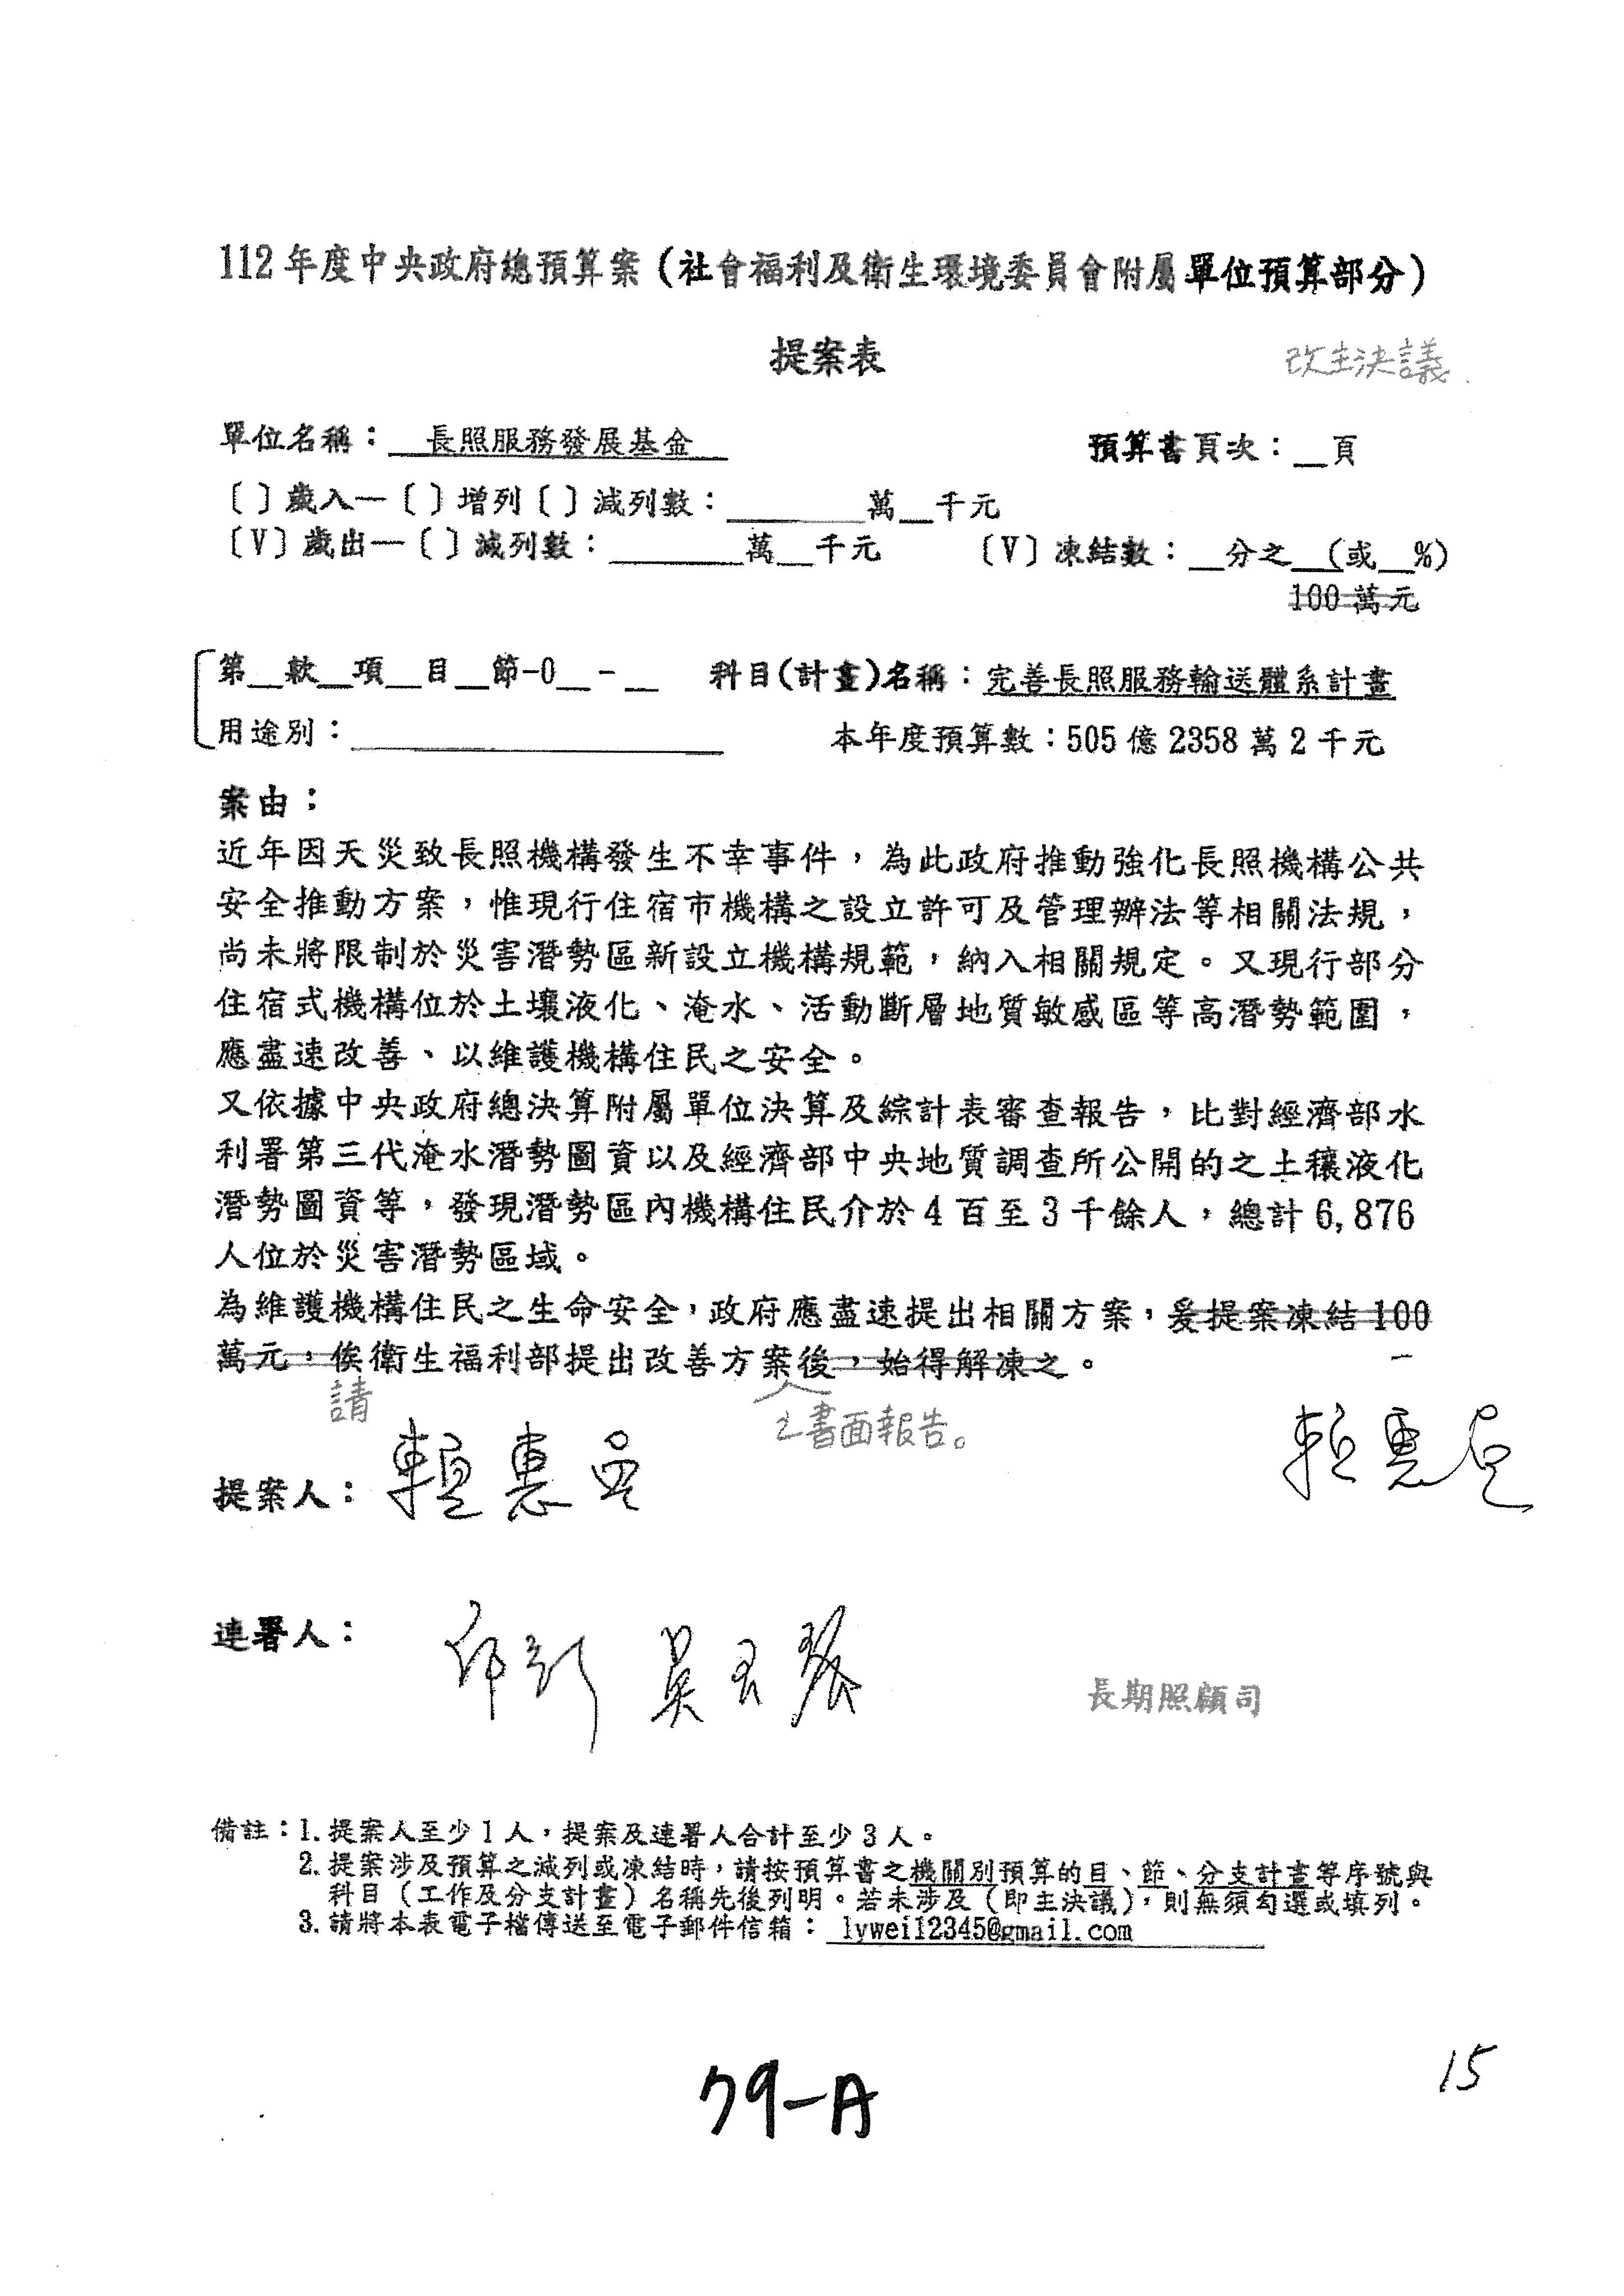 112年度中央政府總預算案(社會福利及衛生環境委員會附屬單位預算部分)
提案表
改主決議
單位名稱：長照服務發展基金 預算書頁次：__頁
〔 〕歲入—〔 〕增列〔 〕減列數：________萬__千元
〔V〕歲出—〔 〕減列數：________萬__千元 〔V〕凍結數：__分之__(或__%)
100萬元
第__款__項__目__節-0__-__ 科目(計畫)名稱：完善長照服務輸送體系計畫
用途別：____________ 本年度預算數：505億2358萬2千元
案由：
近年因天災致長照機構發生不幸事件，為此政府推動強化長照機構公共
安全推動方案，惟現行住宿市機構之設立許可及管理辦法等相關法規，
尚未將限制於災害潛勢區新設立機構規範，納入相關規定。又現行部分
住宿式機構位於土壤液化、淹水、活動斷層地質敏感區等高潛勢範圍，
應盡速改善、以維護機構住民之安全。
又依據中央政府總決算附屬單位決算及綜計表審查報告，比對經濟部水
利署第三代淹水潛勢圖資以及經濟部中央地質調查所公開的之土穰液化
潛勢圖資等，發現潛勢區內機構住民介於4百至3千餘人，總計6,876
人位於災害潛勢區域。
為維護機構住民之生命安全，政府應盡速提出相關方案，爰提案凍結100
萬元，俟衛生福利部提出改善方案後，始得解凍之。
請
之書面報告。
提案人：賴惠員
賴惠員
連署人：
吳玉琴
長期照顧司
備註：1.提案人至少1人，提案及連署人合計至少3人。
2.提案涉及預算之減列或凍結時，請按預算書之機關別預算的目、節、分支計畫等序號與
科目（工作及分支計畫）名稱先後列明。若未涉及（即主決議），則無須勾選或填列。
3.請將本表電子檔傳送至電子郵件信箱：lywei12345@gmail.com
79-A
15